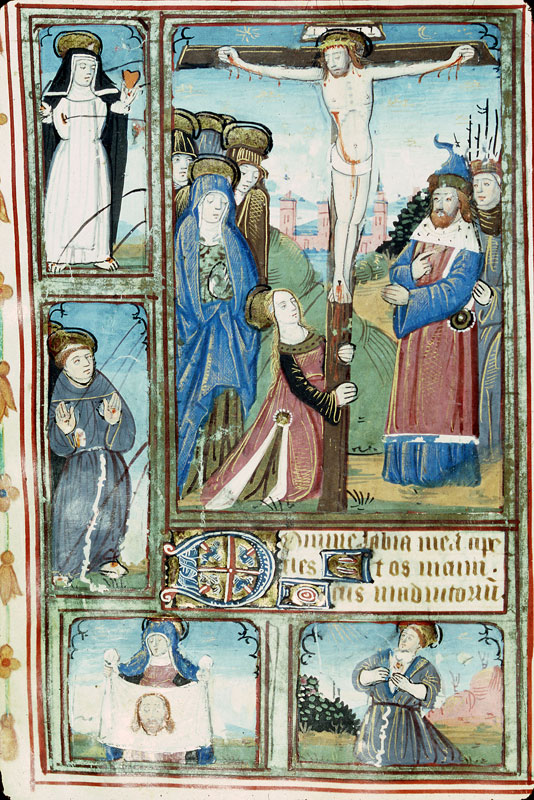 Domine labia mea ape
ries et os meum.
Deus in adiutoriū